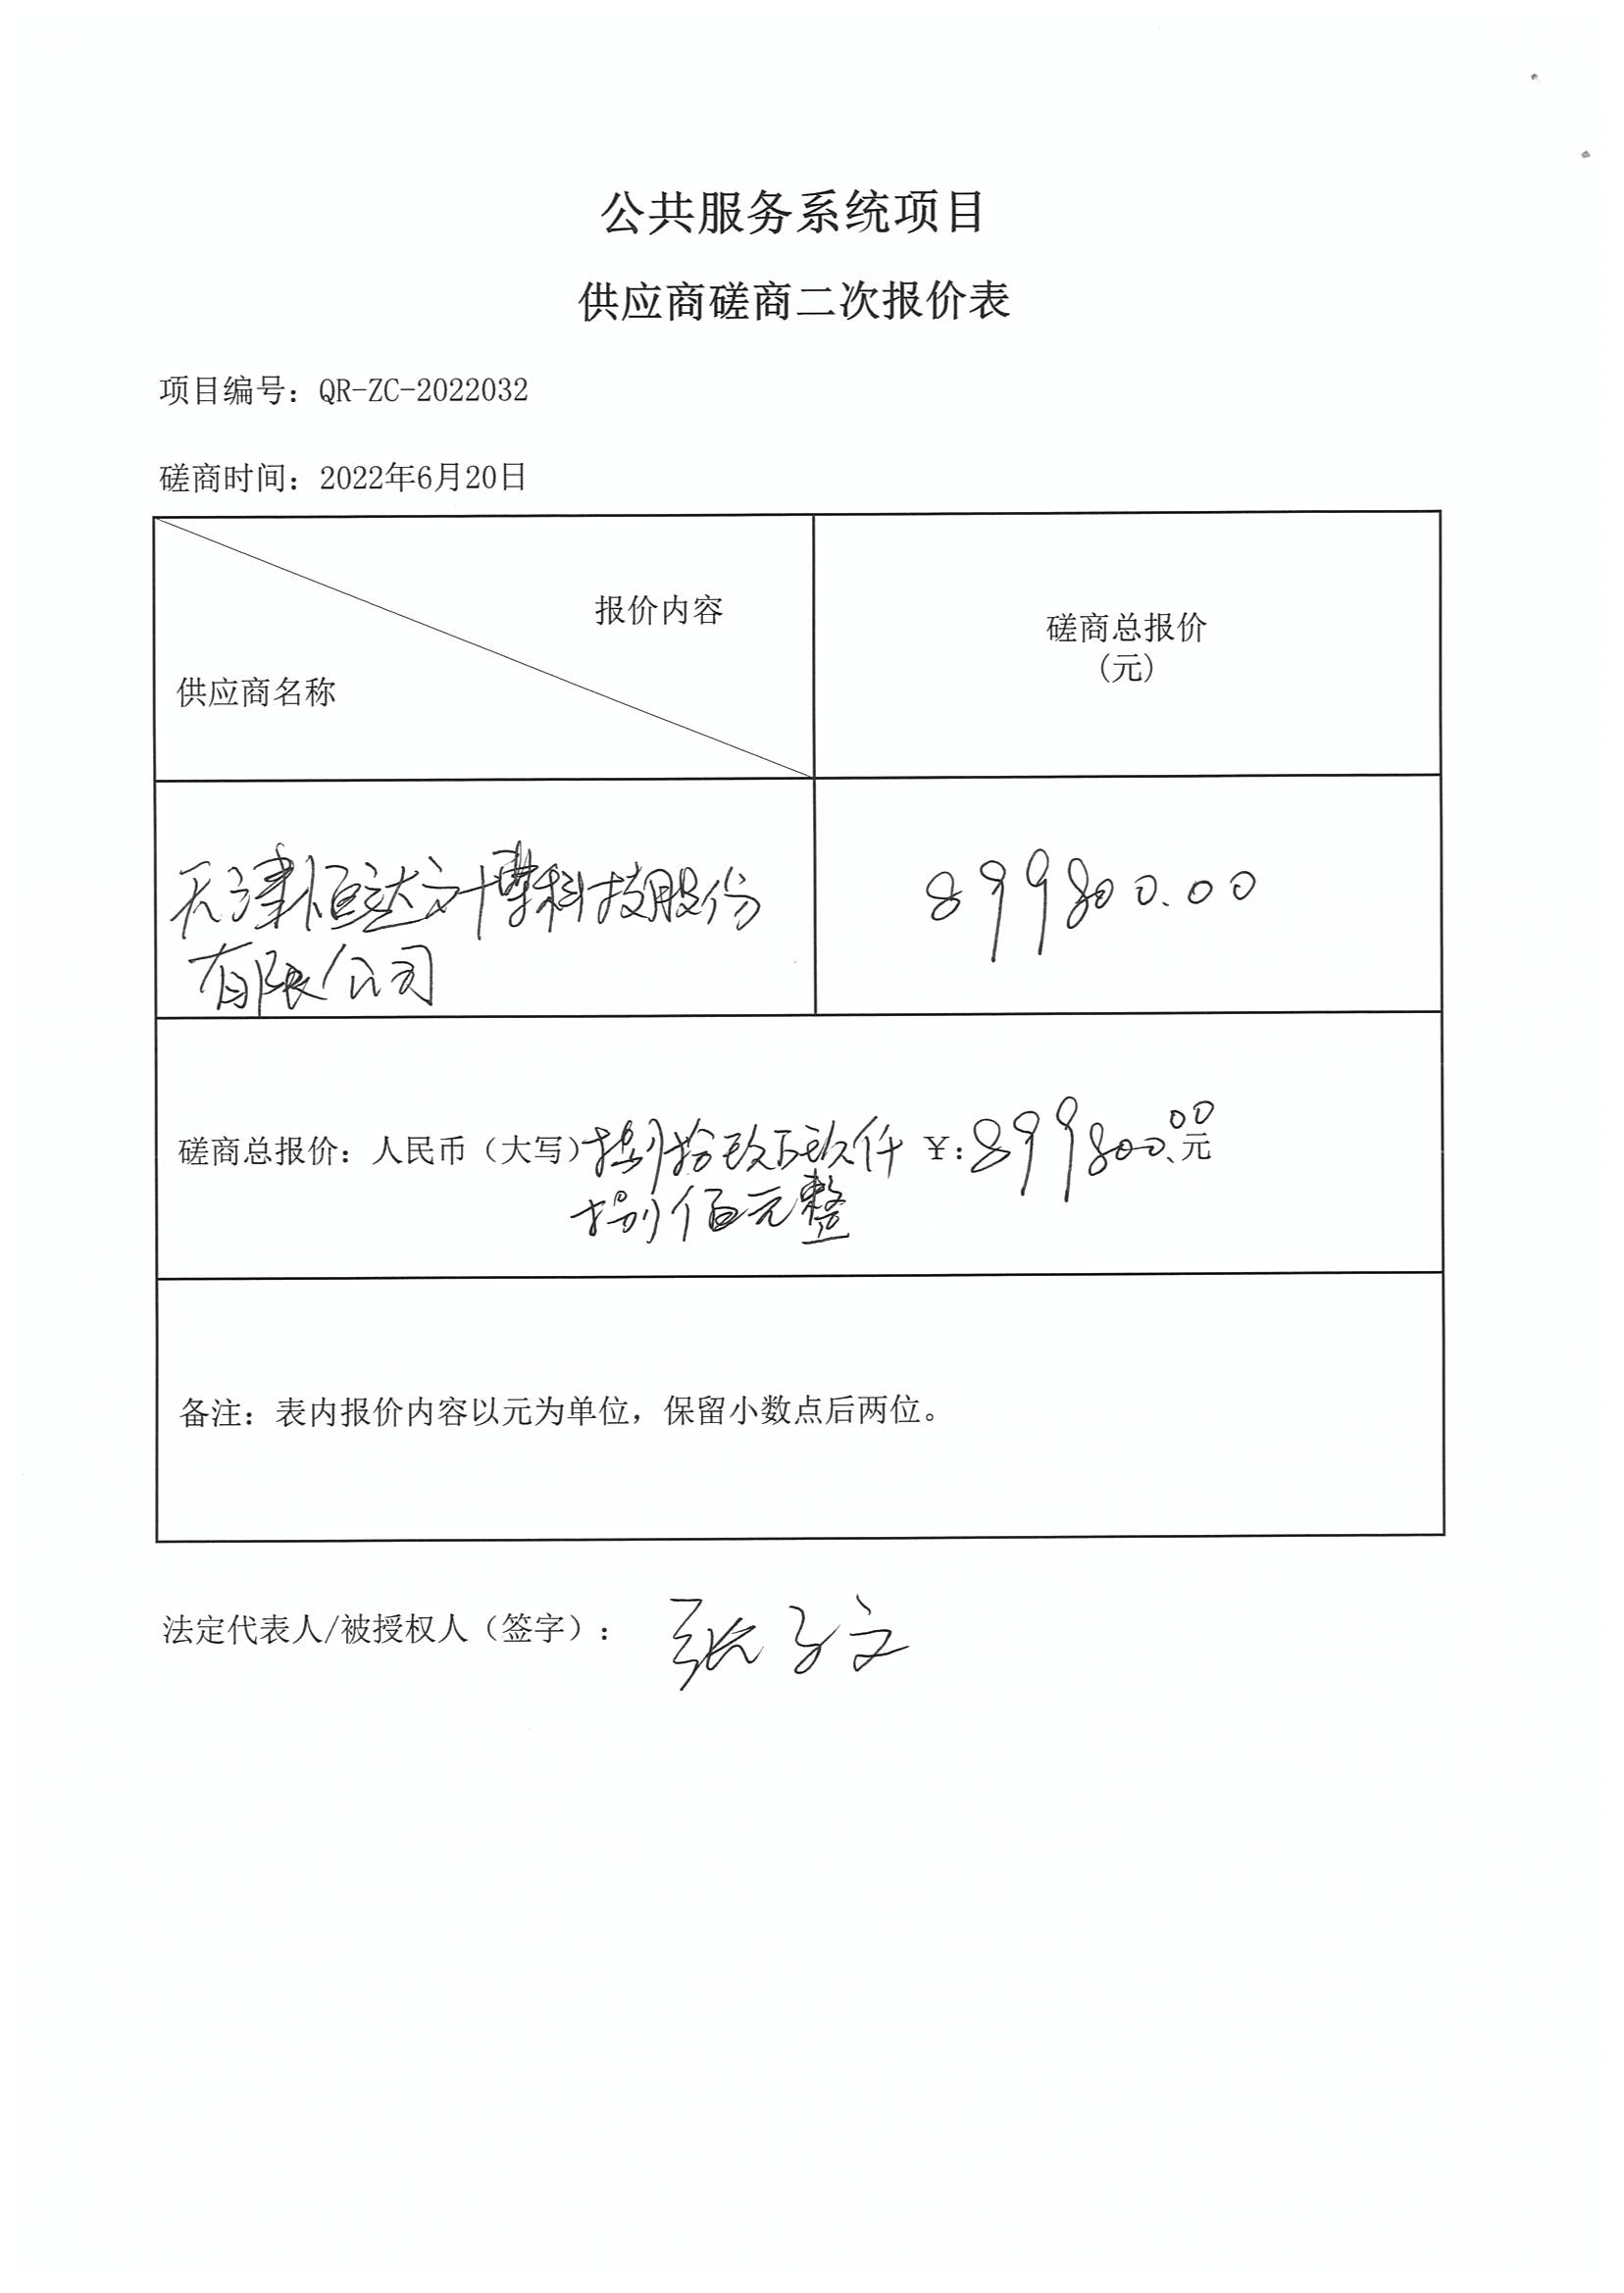 公共服务系统项目
供应商磋商二次报价表
项目编号：QR-ZC-2022032
磋商时间：2022年6月20日
报价内容
供应商名称
磋商总报价
(元)
天津恒达文博科技股份
有限公司
899800.00
磋商总报价：人民币（大写）捌拾玖万玖仟 ¥:899800.00元
捌佰元整
备注：表内报价内容以元为单位，保留小数点后两位。
法定代表人/被授权人（签字）：张子文